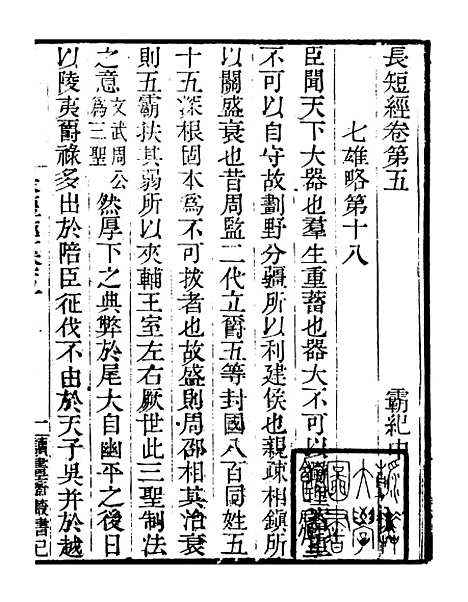 長短經卷第五 霸紀中
七雄略第十八
臣聞天下大器也羣生重蓄也器大不可以獨理蓄重
不可以自守故劃野分疆所以利建侯也親疎相鎮所
以關盛衰也昔周監二代立爵五等封國八百同姓五
十五深根固本為不可拔者也故盛則周邵相其治衰
則五霸扶其弱所以夾輔王室左右厥世此三聖制法
之意文武周公為三聖然厚下之典弊於尾大自幽平之後日
以陵夷爵祿多出於陪臣征伐不由於天子吳并於越
一
讀畫齋叢書己